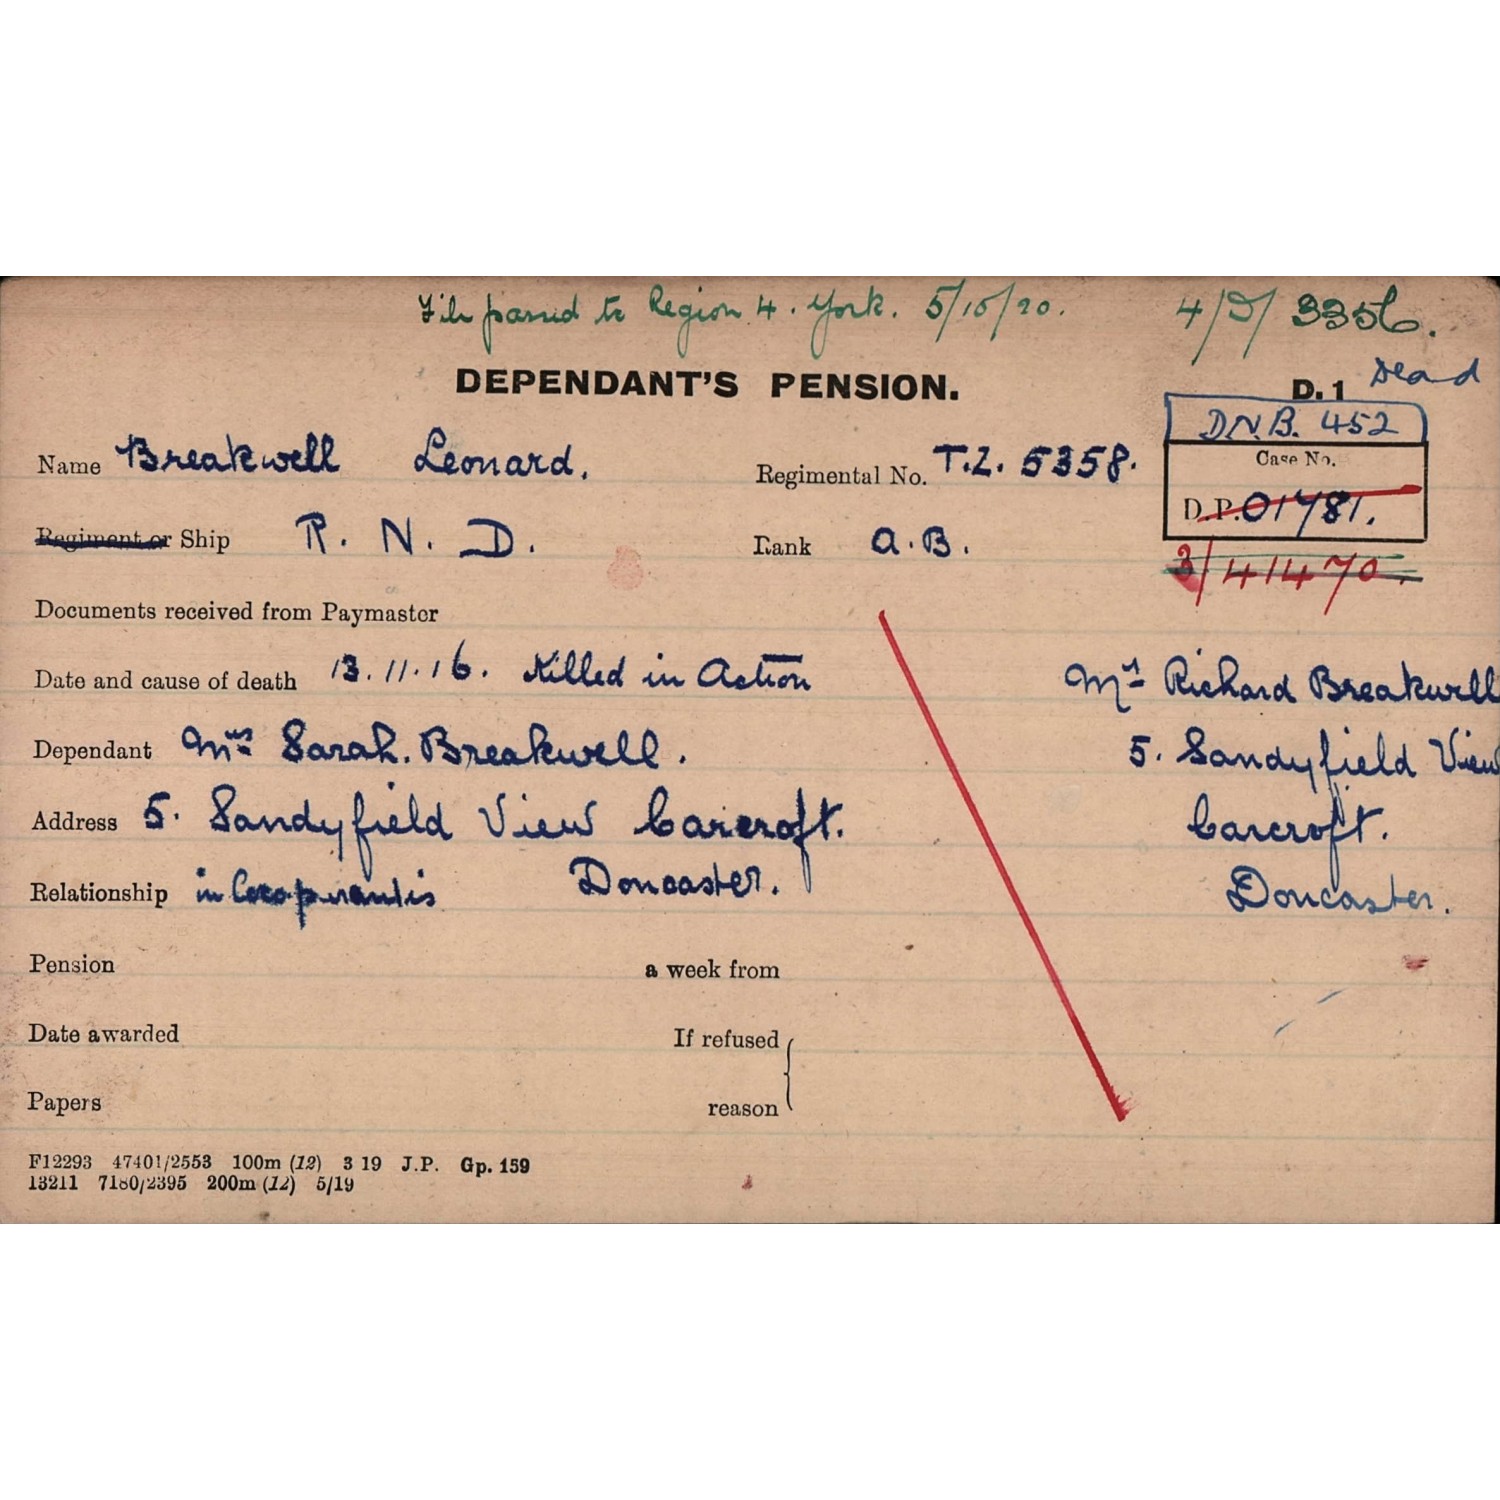 File passed to Region 4. York. 5/10/20. 4/D/ 3356.
DEPENDANT'S PENSION. D.1 Dead
D.N.B. 452
Name Breakwell Leonard. Regimental No. T.Z. 5358. Case No.
D.P. 01781.
Regiment or Ship R. N. D. Rank A.B.
3/41470.
Documents received from Paymaster
Date and cause of death 13.11.16. Killed in Action Mr Richard Breakwell
Dependant Mrs Sarah. Breakwell. 5. Sandyfield View
Address 5. Sandyfield View Carcroft. Carcroft.
Relationship in Doncaster. Doncaster.
Pension a week from
Date awarded If refused
Papers reason
F12293 47401/2553 100m (12) 3 19 J.P. Gp. 159
13211 7180/2395 200m (12) 5/19